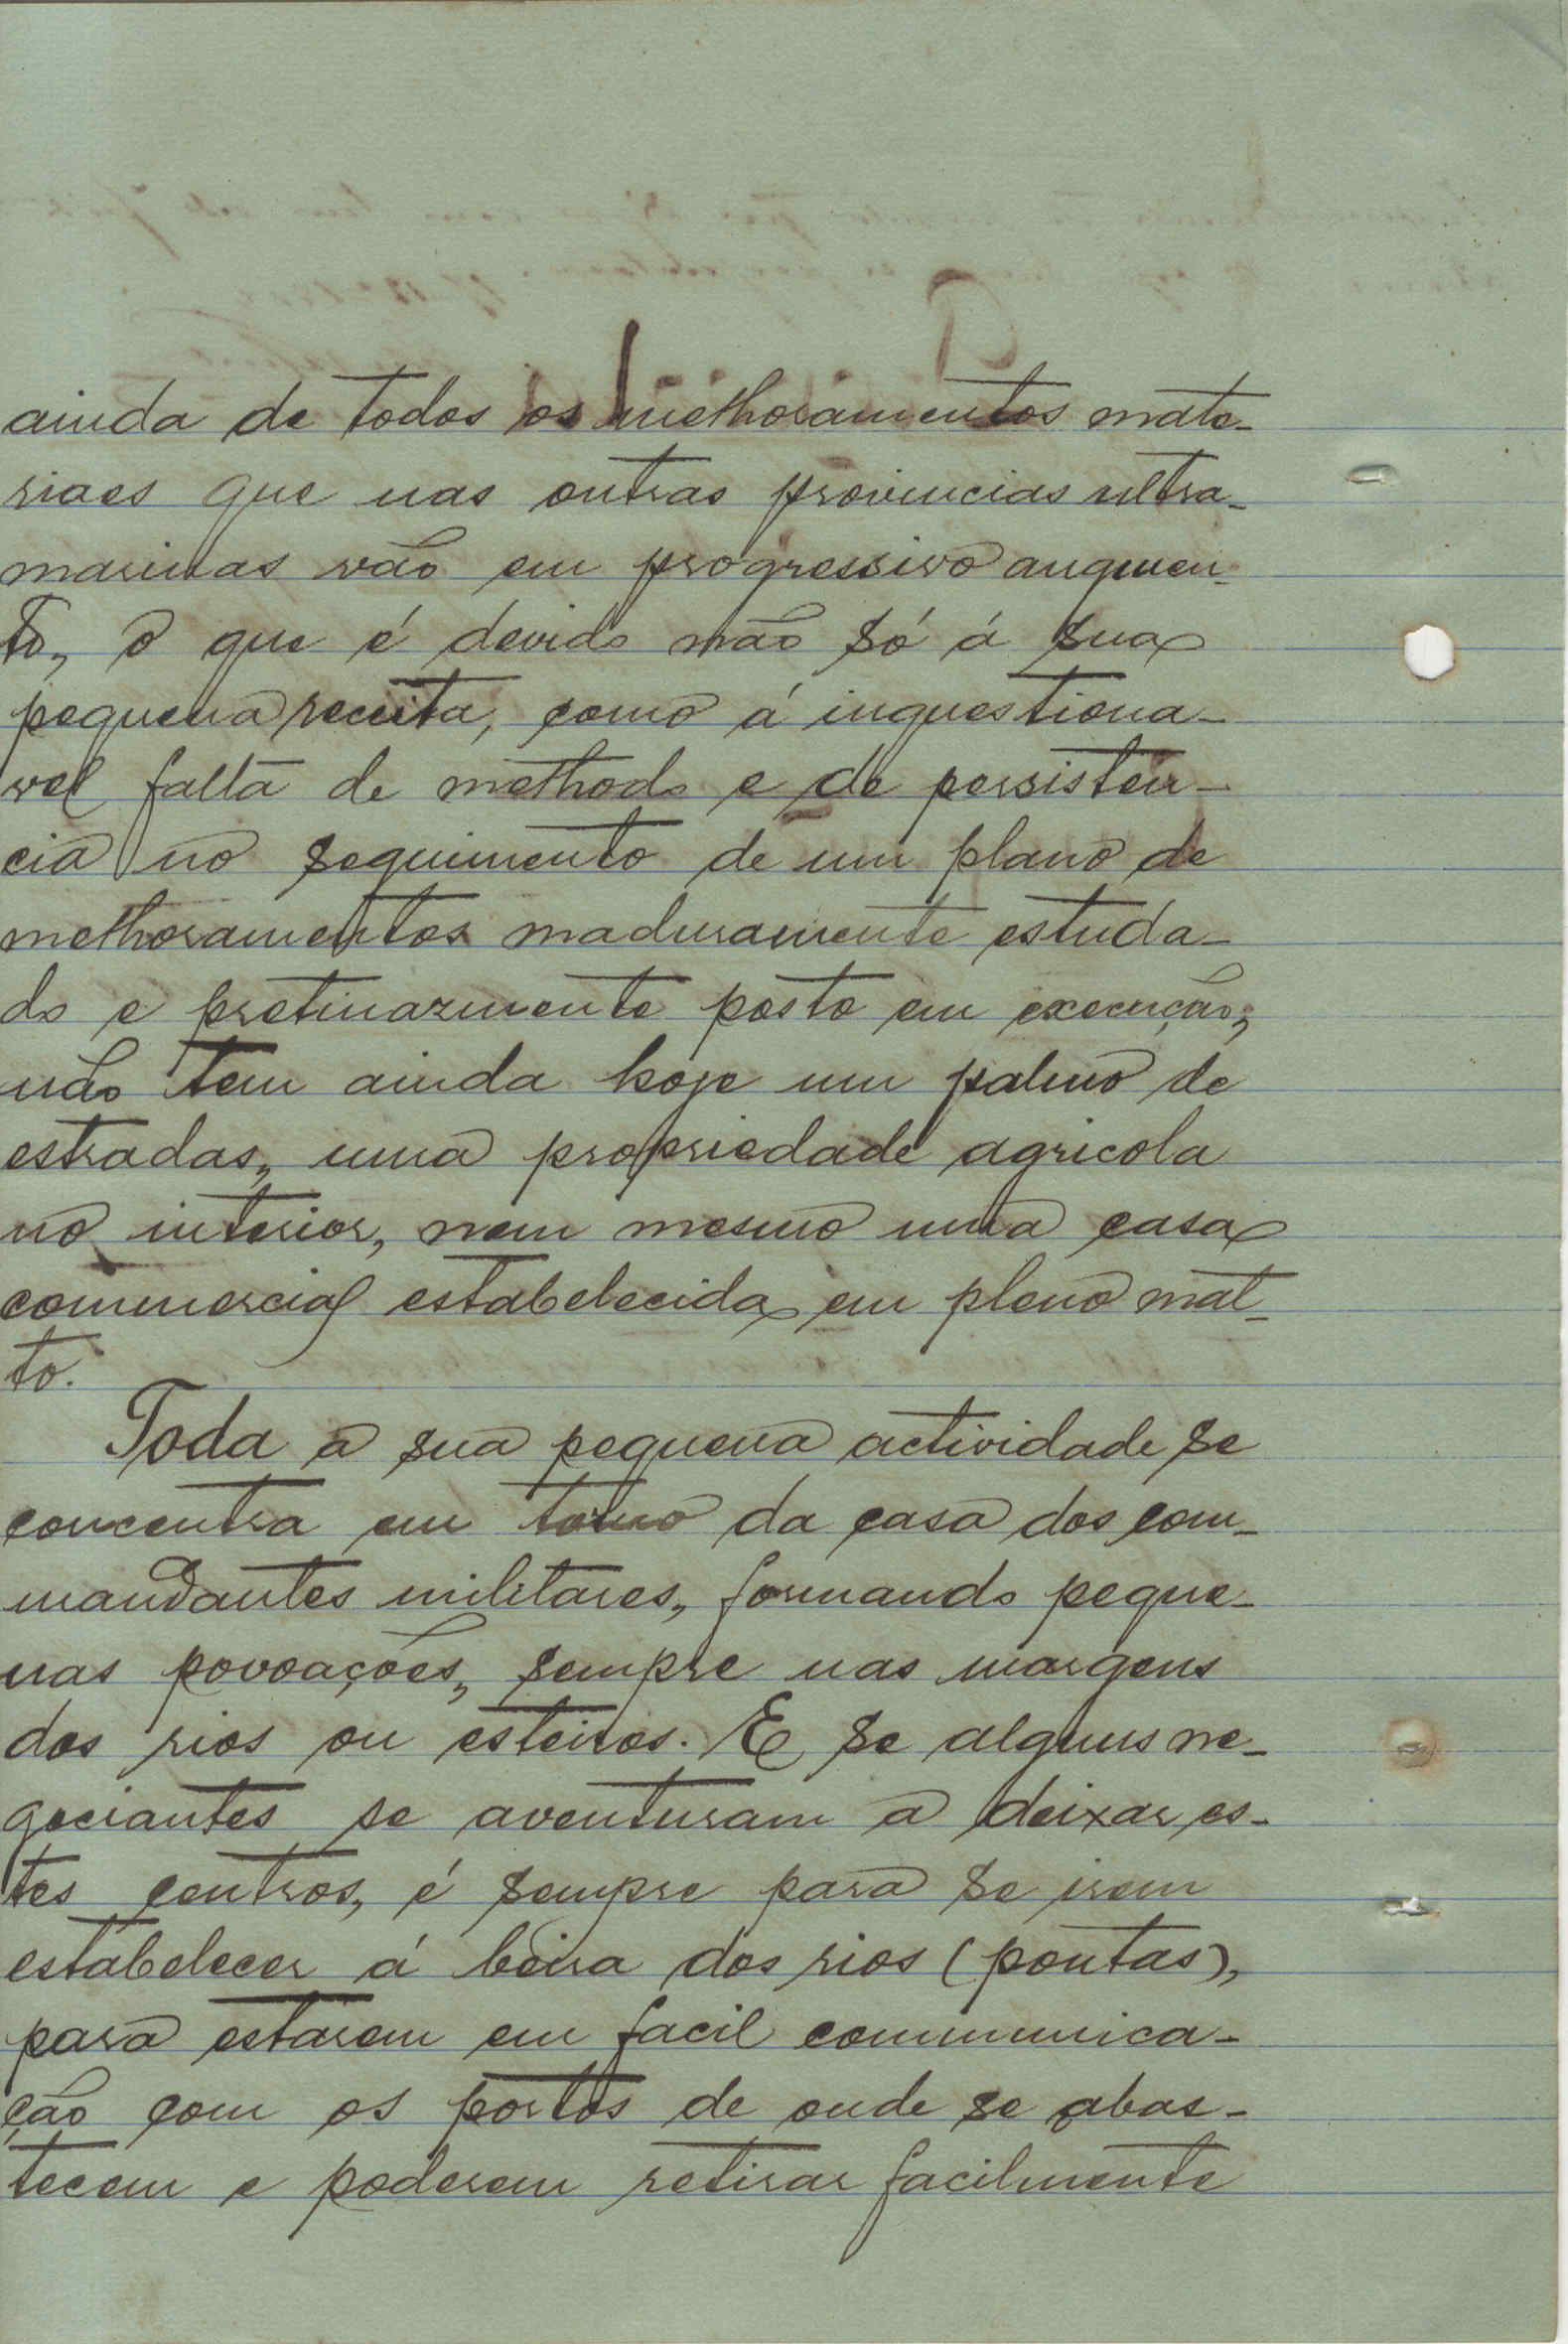 ainda de todos os melhoramentos mate-
riaes que nas outras provincias ultra-
marinas vão em progressivo augmen-
to, o que é devido não só á sua
pequena receita, como á inquestiona-
vel falta de methodo e de persisten-
cia no seguimento de um plano de
melhoramentos maduramente estuda-
do e pretinazmente posto em execução,
não tem ainda hoje um palmo de
estradas, uma propriedade agricola
no interior, nem mesmo uma casa
commercial estabelecida em pleno mat-
to.
Toda a sua pequena actividade se
concentra em torno da casa dos com-
mandantes militares, formando peque-
nas povoações, sempre nas margens
dos rios ou esteiros. E se alguns ne-
gociantes se aventuram a deixar es-
tes centros, é sempre para se irem
estabelecer á beira dos rios (pontas),
para estarem em facil communica-
ção com os portos de onde se abas-
tecem e poderem retirar facilmente